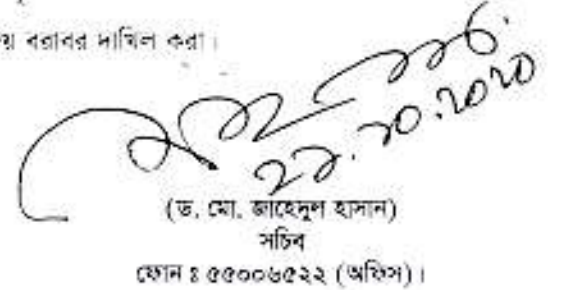 য় বরাবর দাখিল করা।
২২.১০.২০২০
(ড. মো. জাহেদুল হাসান)
সচিব
ফোন ঃ ৫৫০০৬৫২২ (অফিস)।